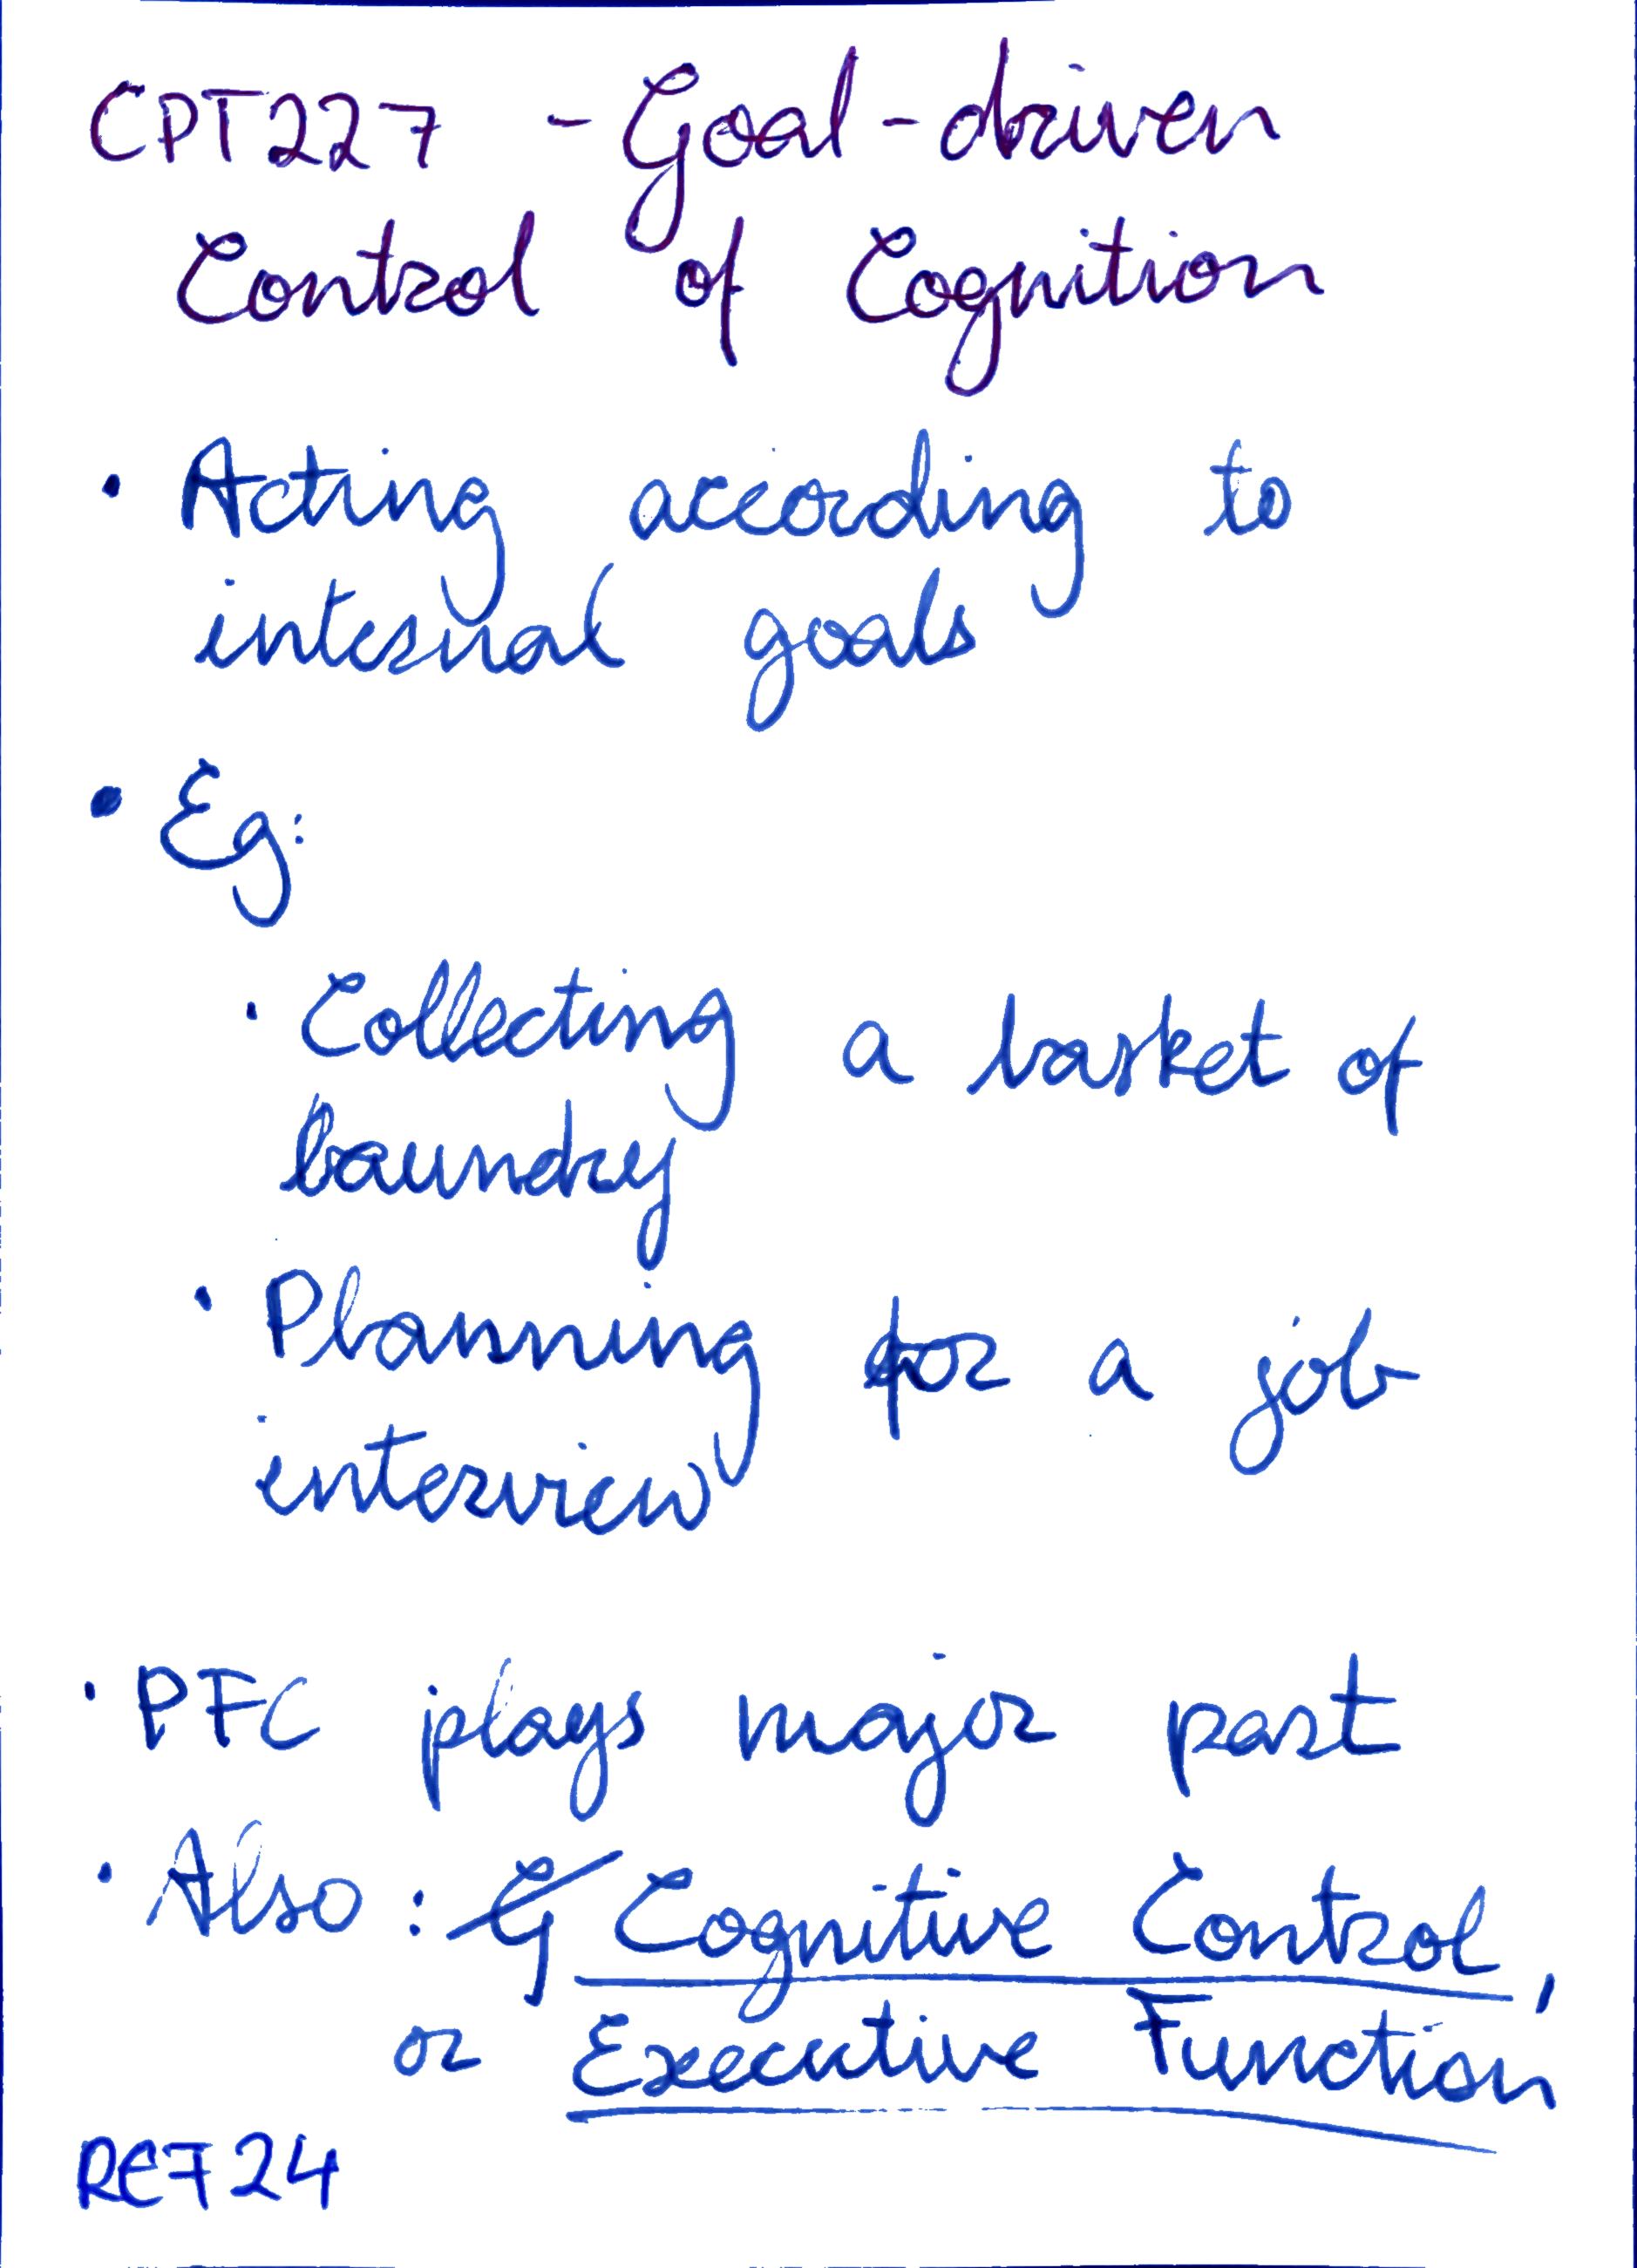 CPT227 - Goal-driven
Control of Cognition
• Acting according to
internal goals
• Eg:
• Collecting a basket of
laundry
• Planning for a job
interview
• PFC plays major part
• Also : G Cognitive Control,
or Executive Function
REF24